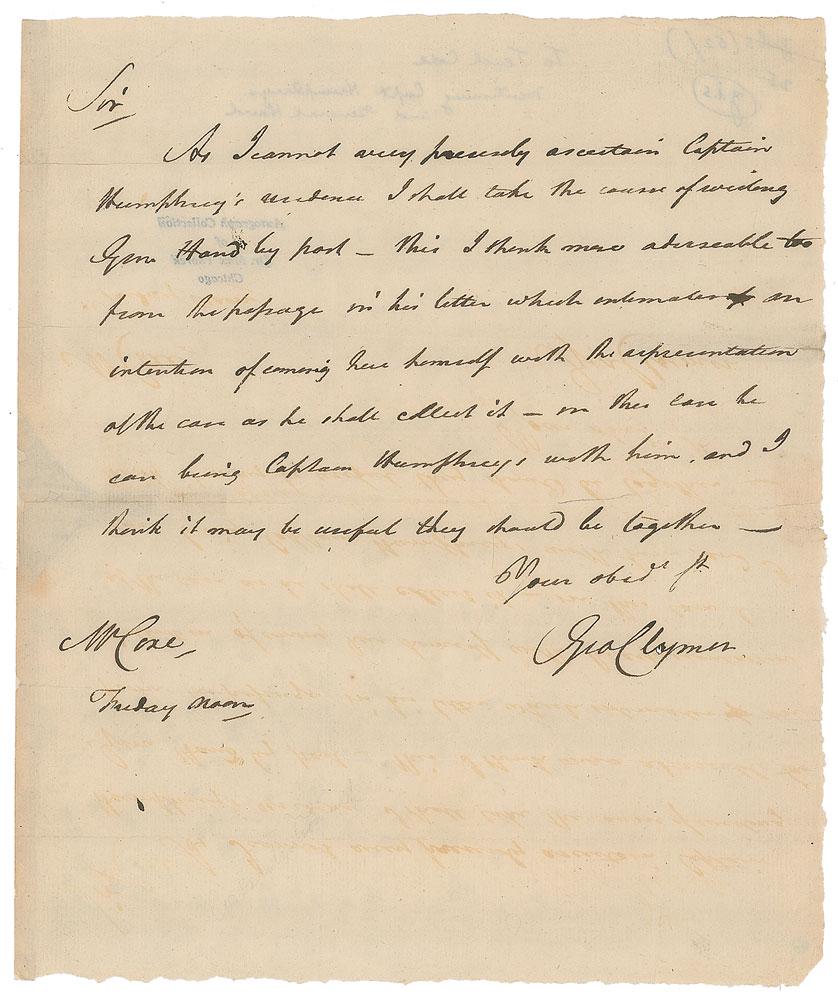 Sir
As I cannot very precisely ascertain Captain
Humphrey's residence I shall take the course of writing
Genl Hand by post — this I think more adviseable too
from the passage in his letter which intimates an
intention of coming here himself with the representation
of the case as he shall collect it — in this case he
can bring Captain Humphreys with him, and I
think it may be useful they should be together —
Your obedt st
Geo Clymer
Mr Coxe,
Friday noon